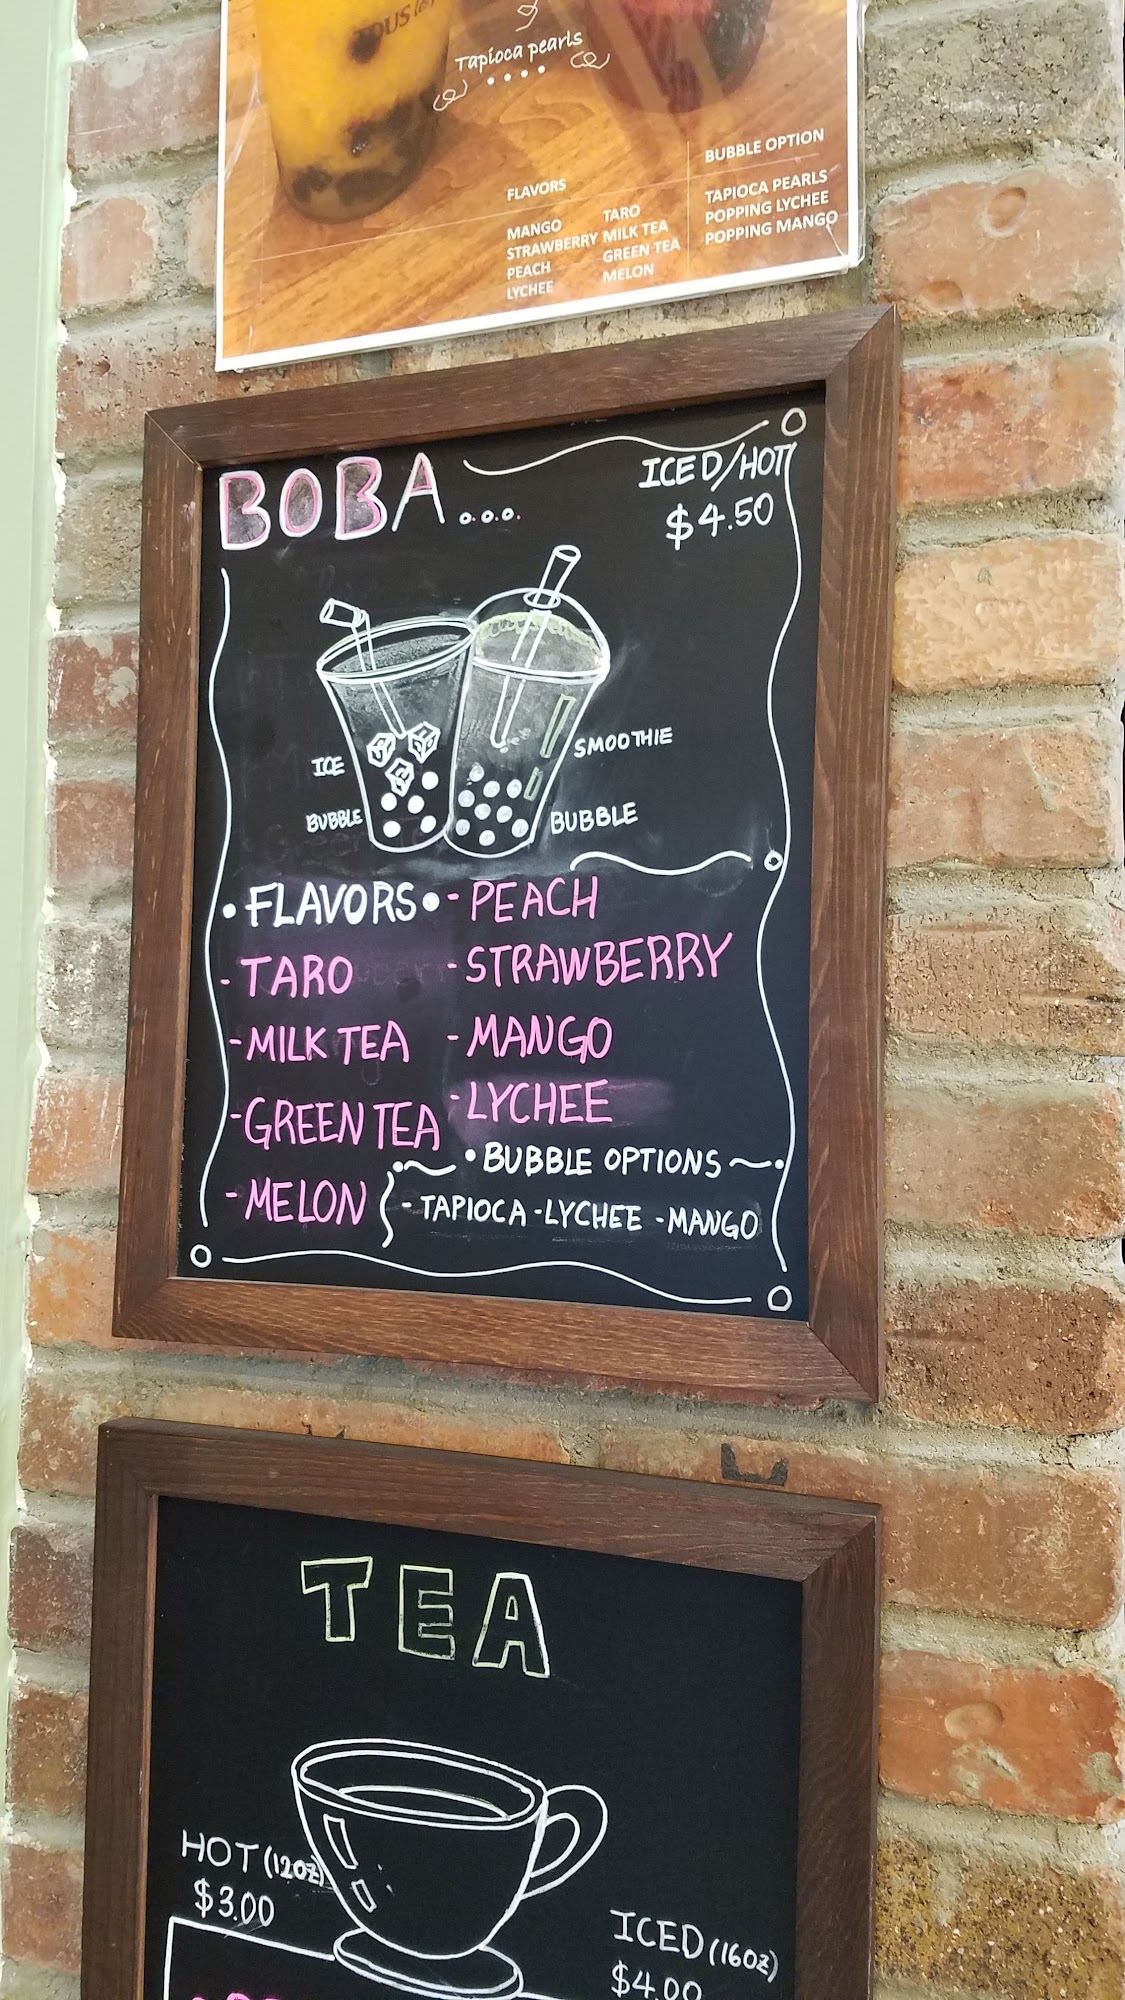 TOUS
Tapioca pearls
FLAVORS
MANGO
STRAWBERRY
PEACH
LYCHEE
TARO
MILK TEA
GREEN TEA
MELON
BUBBLE OPTION
TAPIOCA PEARLS
POPPING LYCHEE
POPPING MANGO
BOBA....
ICED/HOT
$4.50
ICE
BUBBLE
SMOOTHIE
BUBBLE
•FLAVORS•
-TARO
-MILK TEA
-GREEN TEA
-MELON
-PEACH
-STRAWBERRY
-MANGO
-LYCHEE
•BUBBLE OPTIONS
-TAPIOCA -LYCHEE -MANGO
TEA
HOT (12OZ)
$3.00
ICED (16OZ)
$4.00